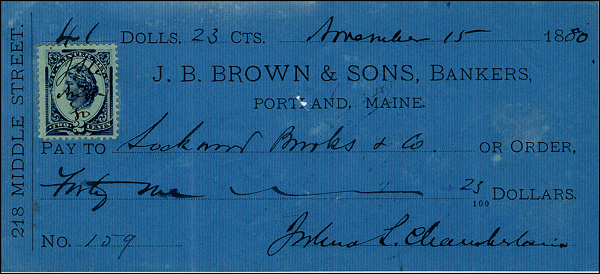 41 DOLLS. 23 CTS. November 15 1880
J. B. BROWN & SONS, BANKERS,
PORTLAND, MAINE.
218 MIDDLE STREET.
TWO 2 CENTS
PAY TO Lockwood Brooks & Co. OR ORDER,
Forty one 23/100 DOLLARS.
NO. 159 Joshua L. Chamberlain